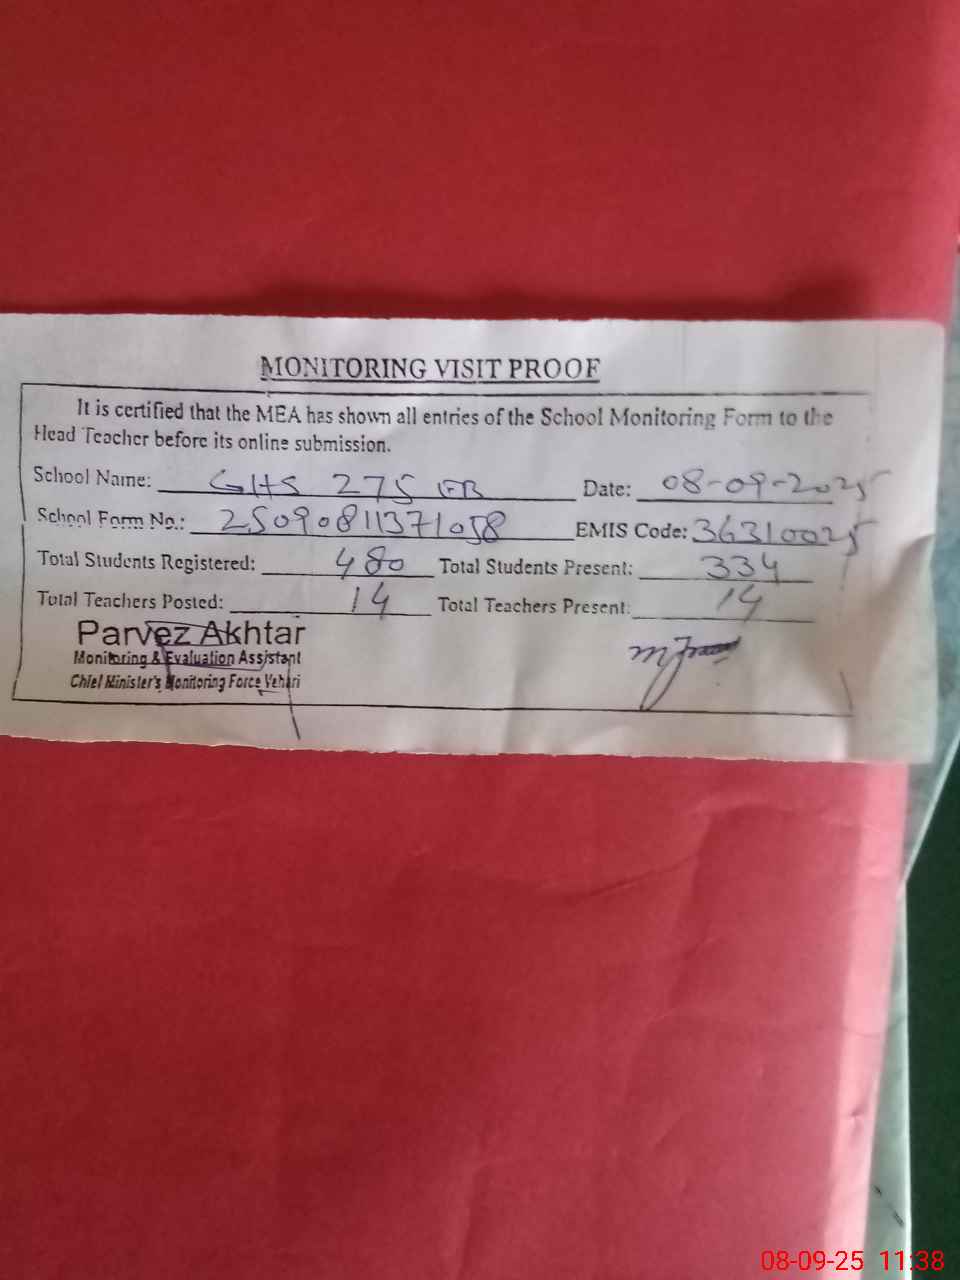 MONITORING VISIT PROOF
It is certified that the MEA has shown all entries of the School Monitoring Form to the
Head Teacher before its online submission.
School Name: GHS 275 EB Date: 08-09-2025
School Form No.: 25090811371058 EMIS Code: 36310025
Total Students Registered: 480 Total Students Present: 334
Total Teachers Posted: 14 Total Teachers Present: 14
Parvez Akhtar
Monitoring & Evaluation Assistant
Chief Minister's Monitoring Force Vehari
08-09-25 11:38